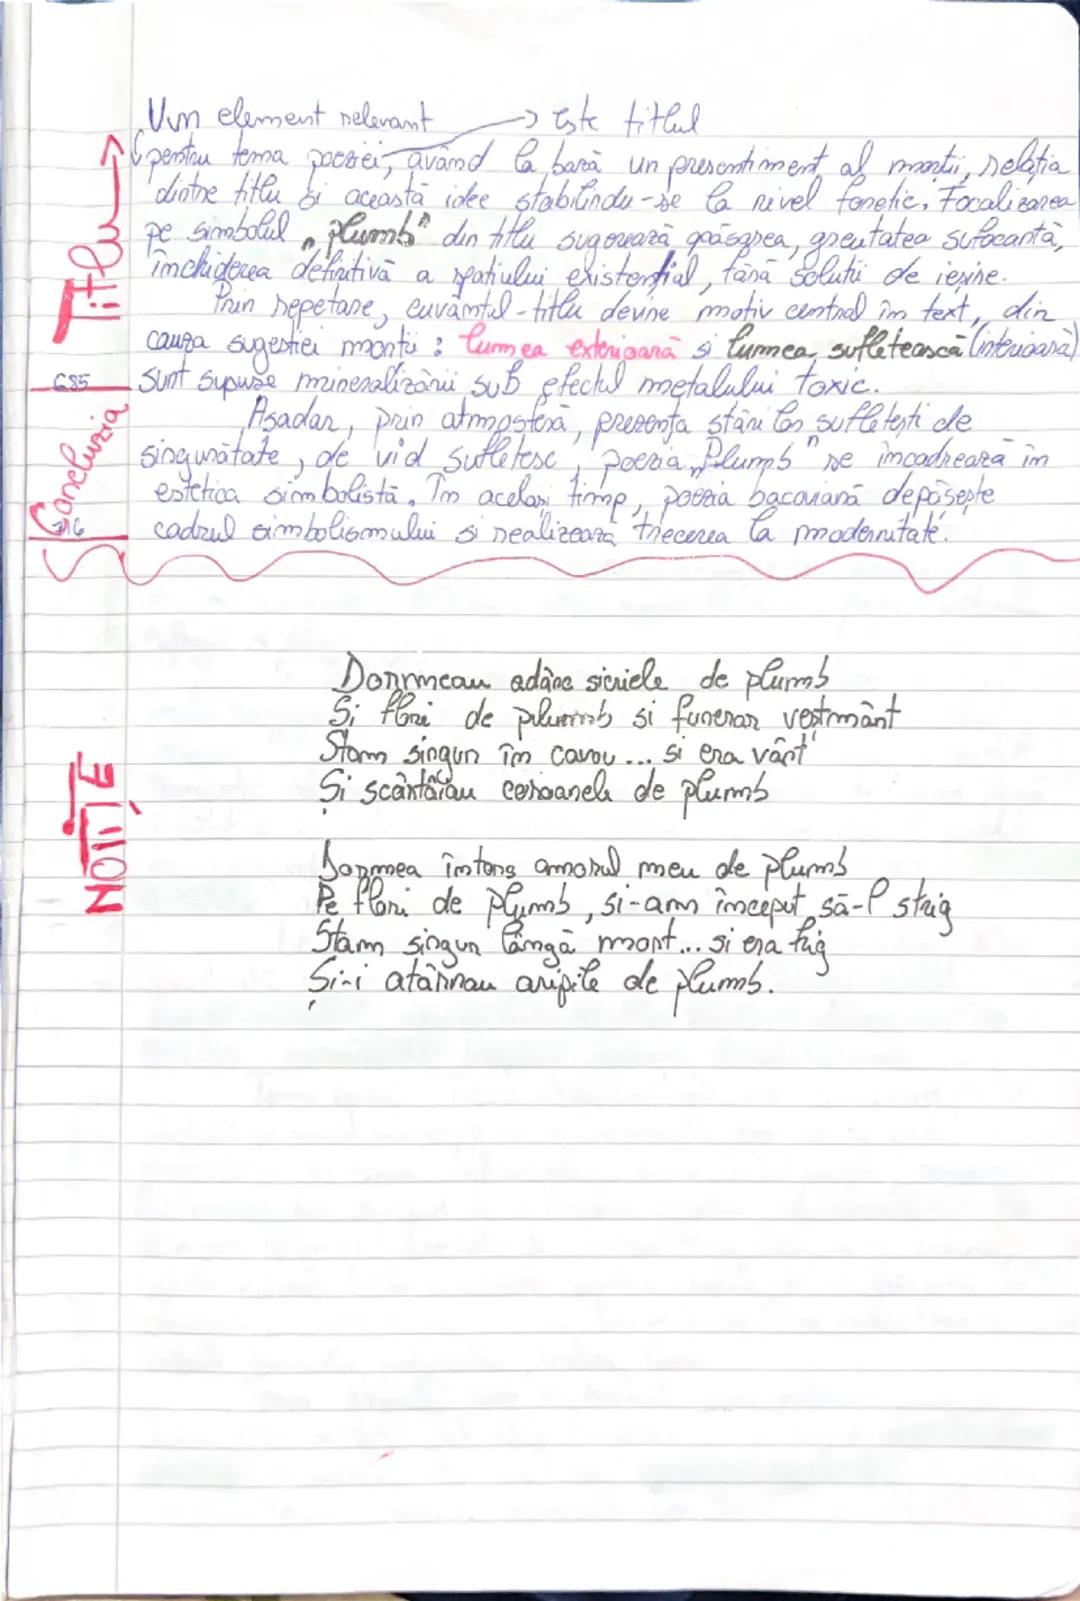 Titlu →
Un element relevant → Este titlul
pentru tema poeziei, având la bază un presentiment al morții, relația
dintre titlu și această idee stabilindu-se la nivel fonetic. Focalizarea
pe simbolul „plumb" din titlu sugerează apăsarea, greutatea sufocantă,
închiderea definitivă a spațiului existențial, fără soluții de ieșire.
Prin repetare, cuvântul-titlu devine motiv central în text, din
cauza sugestiei morții: lumea exterioară și lumea sufletească (interioară)
685
sunt supuse mineralizării sub efectul metalului toxic.
Concluzia
Așadar, prin atmosferă, prezența stărilor sufletești de
singurătate, de vid sufletesc, poezia „Plumb" se încadrează în
estetica simbolistă. În același timp, poezia bacoviană depășește
716
cadrul simbolismului și realizează trecerea la modernitate.
NOTIȚE
Dormeau adânc sicriele de plumb
Și flori de plumb și funerar vestmânt
Stam singur în cavou... și era vânt
Și scârțâiau coroanele de plumb
Dormea întors amorul meu de plumb
Pe flori de plumb, și-am început să-l strig
Stam singur lângă mort... și era frig
Și-i atârnau aripile de plumb.